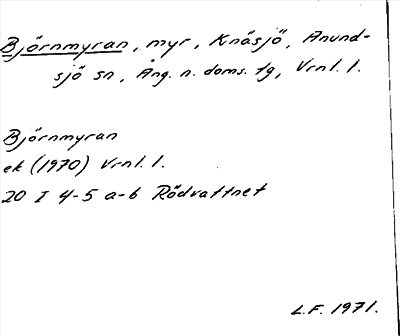 Björnmyran, myr, Knäsjö, Anund-
sjö sn, Ång. n. doms. tg, Vrnl. 1.
Björnmyran
ek (1970) Vrnl. 1.
20 I 4-5 a-b Rödvattnet
L.F. 1971.